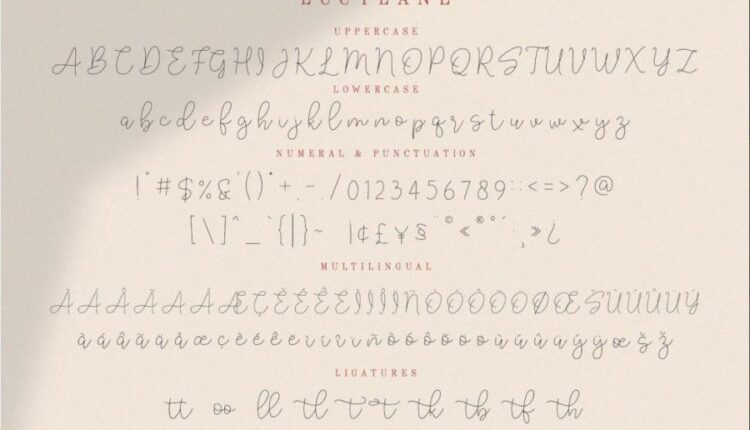 LUCYLANE
UPPERCASE
A B C D E F G H I J K L M N O P Q R S T U V W X Y Z
LOWERCASE
a b c d e f g h i j k l m n o p q r s t u v w x y z
NUMERAL & PUNCTUATION
! " # $ % & ' ( ) * + , - . / 0 1 2 3 4 5 6 7 8 9 : ; < = > ? @
[ \ ] ^ _ ` { | } ~ ¡ ¢ £ ¥ § ¨ © « ® ° ´ · ¸ » ¿
MULTILINGUAL
À Á Â Ã Ä Å Æ Ç È É Ê Ë Ì Í Î Ï Ñ Ò Ó Ô Õ Ö Ø Œ Š Ù Ú Û Ü Ÿ
à á â ã ä å æ ç è é ê ë ì í î ï ñ ò ó ô õ ö ù ú û ü ý ÿ œ š ž
LIGATURES
tt oo ll tl tt tk tb tf th